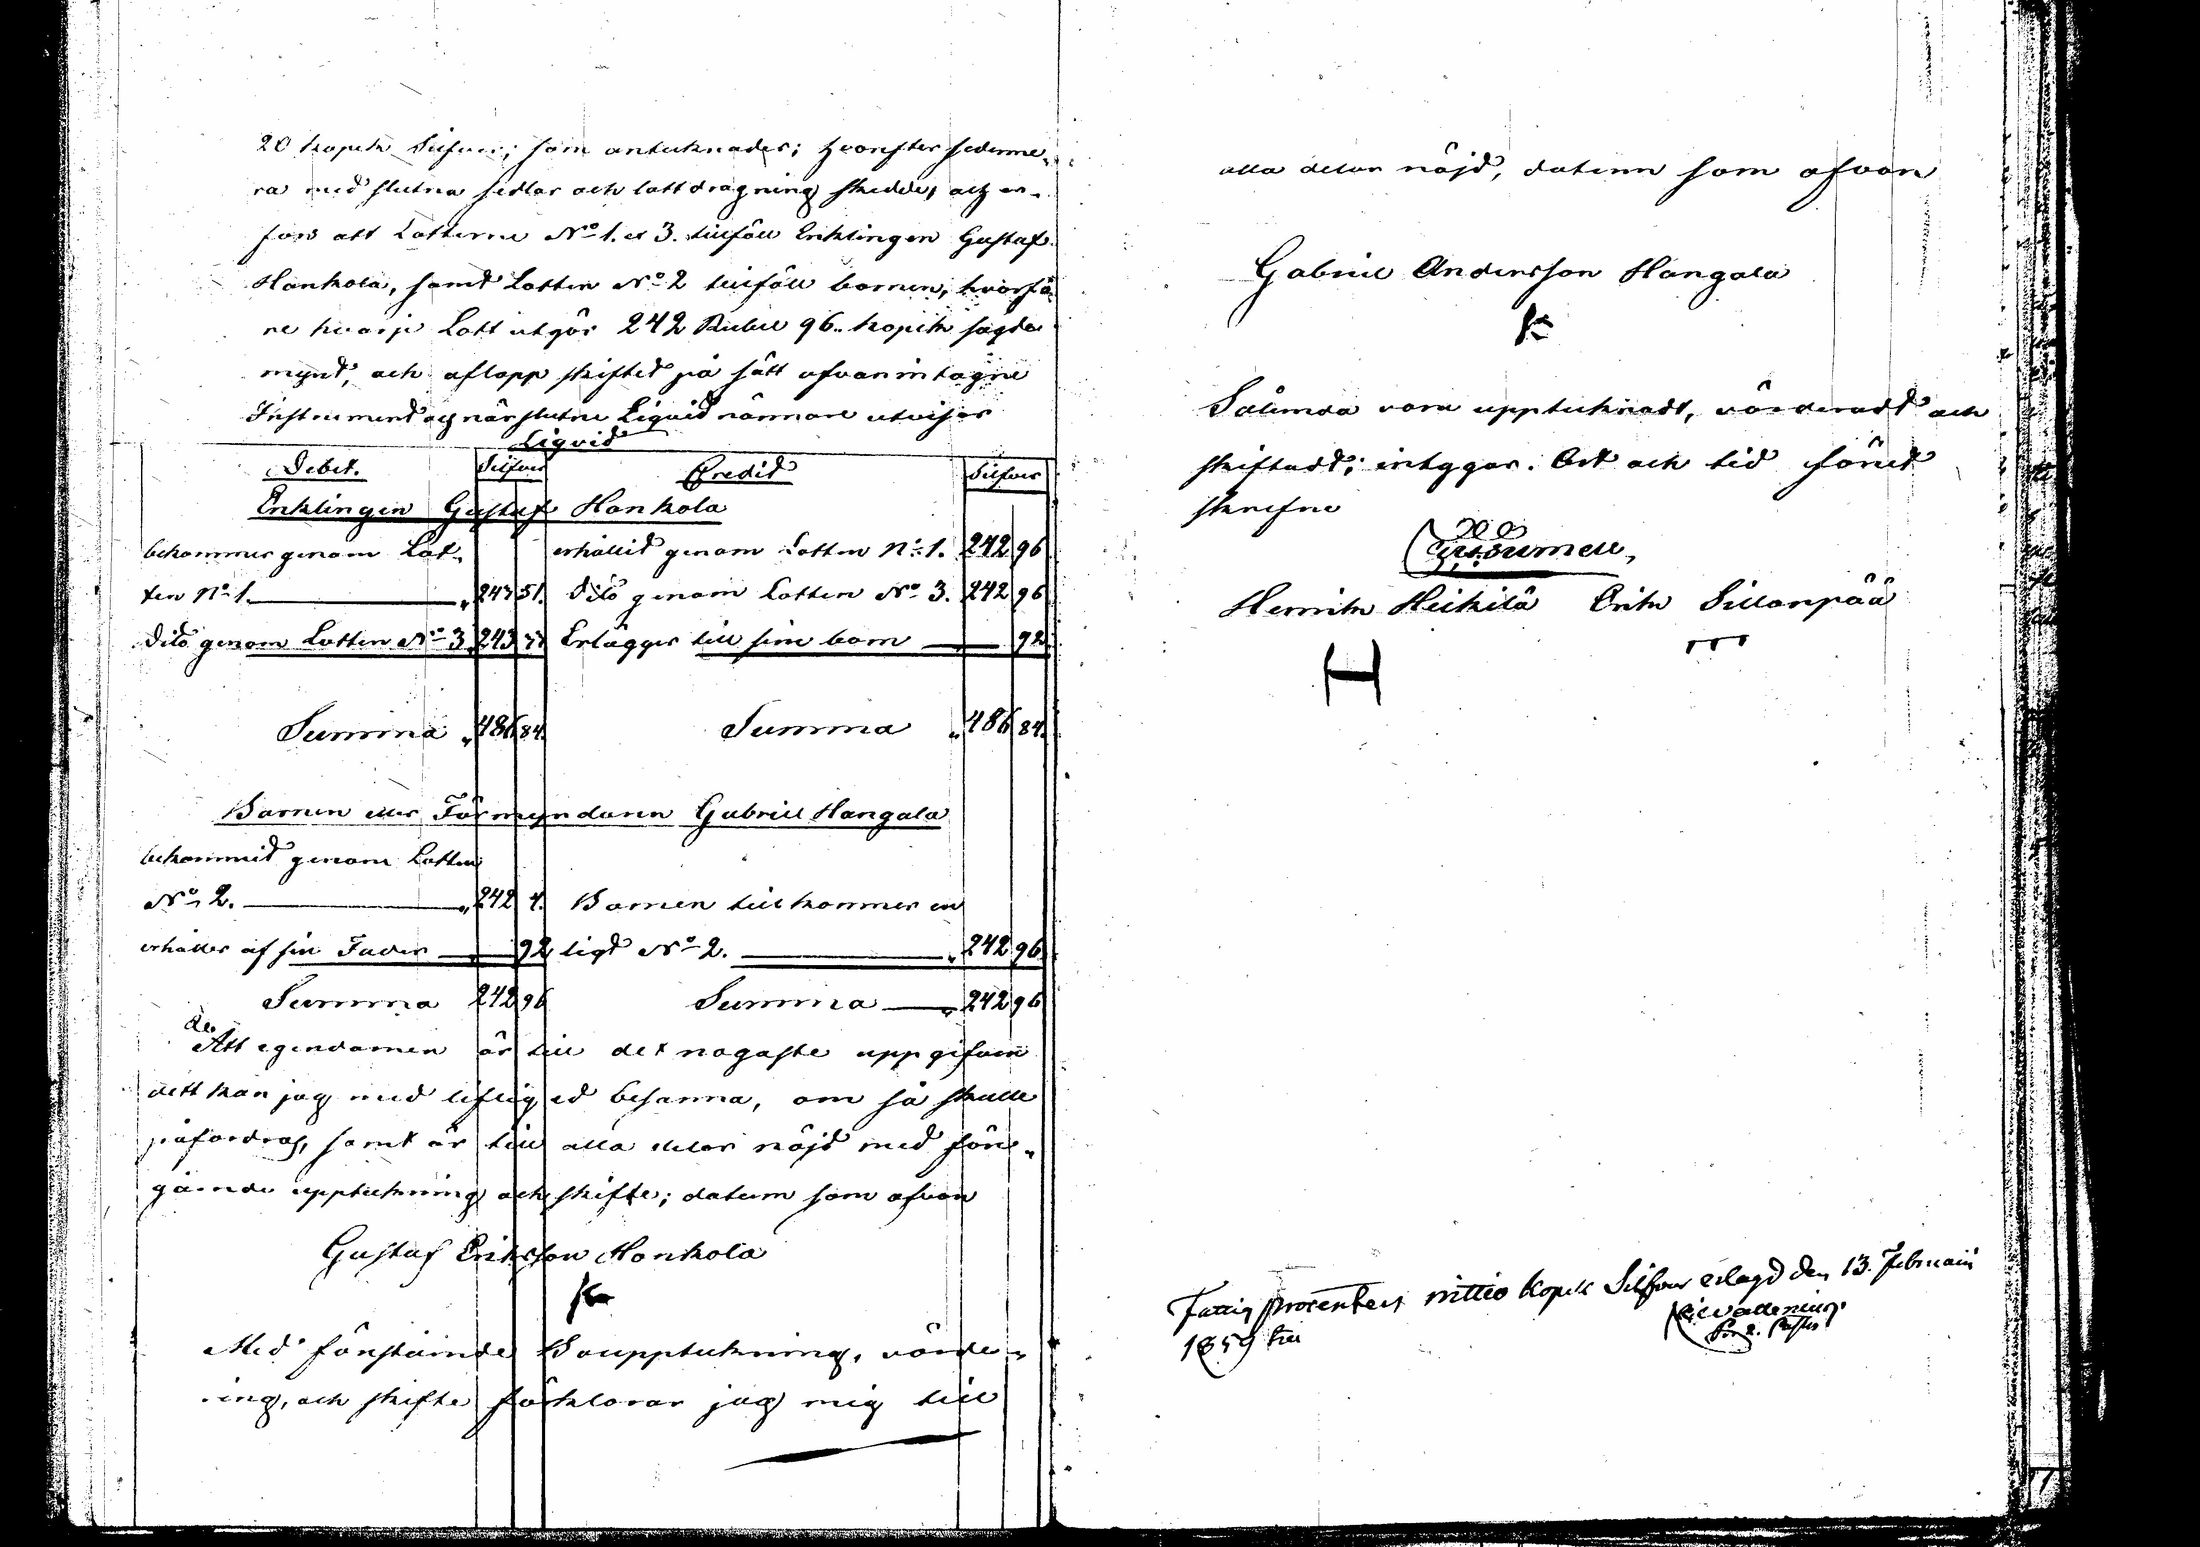 20 kopek Silfver; som antecknades; hvarefter sederme-
ra med slutna sedlar och lottdragning skedde, och er-
fors att Lotterne No 1. et 3. tillföll Enklingen Gustaf
Honkola, samt Lotten No 2 tillföll barnen, hvarfö-
re hvarje Lott utgör 242 Rubel 96. kopek sagde
mynt, och aflopp skiftet på sätt ofvanintagne
Instrument och närslutne Liqvid närmare utvisar
Liqvid
Debet. Silfver Credit Silfver
Enklingen Gustaf Honkola
bekommer genom Lot- erhållit genom Lotten No 1. 242 96
ten No 1. " 243 51. Dito genom Lotten No 3. 242 96
Dito genom Lotten No 3 243 Erlägger till sine barn 92
Summa " 486 84. Summa " 486 84.
Barnen eller Förmyndaren Gabriel Hangala
bekommit genom Lotten
No 2. " 242 4. Barnen tillkommer en
erhåller af sin Fader 92 ligt No 2. " 242 96
Summa 242 96 Summa " 242 96
Att egendomen är till det nogaste uppgifven
dett kan jag med liflig ed besanna, om så skulle
påfordras, samt är till alla delar nöjd med före-
gående uppteckning och skifte; datum som ofvan
Gustaf Eriksson Honkola
Med förestående Bouppteckning, värde-
ring, och skifte förklarar jag mig till
alla delar nöjd, datum som ofvan
Gabriel Andersson Hangala
Sålunda vara upptecknadt, värderadt och
skiftadt; intygar. Ort och tid föret
skrefne
Henrik Heikilä Erik Sillanpää
H
Fattig procenten nittio kopek Silfver erlagd den 13. Februarii
1859